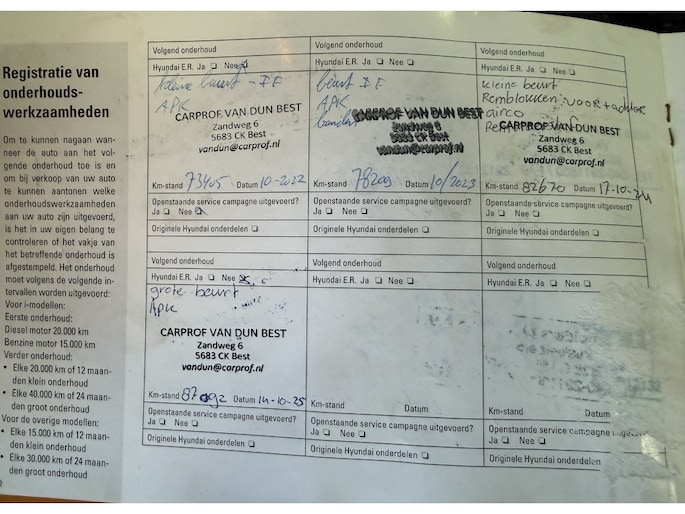 Registratie van
onderhouds-
werkzaamheden
Om te kunnen nagaan wan-
neer de auto aan het vol-
gende onderhoud toe is en
om bij verkoop van uw auto
te kunnen aantonen welke
onderhoudswerkzaamheden
aan uw auto zijn uitgevoerd,
is het in uw eigen belang te
controleren of het vakje van
het betreffende onderhoud is
afgestempeld. Het onderhoud
moet volgens de volgende in-
tervallen worden uitgevoerd:
Voor i-modellen:
Eerste onderhoud:
Diesel motor 20.000 km
Benzine motor 15.000 km
Verder onderhoud:
• Elke 20.000 km of 12 maan-
den klein onderhoud
• Elke 40.000 km of 24 maan-
den groot onderhoud
Voor de overige modellen:
• Elke 15.000 km of 12 maan-
den klein onderhoud
• Elke 30.000 km of 24 maan-
den groot onderhoud
2
Volgend onderhoud
Hyundai E.R. Ja Nee
kleine beurt
APK
CARPROF VAN DUN BEST
Zandweg 6
5683 CK Best
vandun@carprof.nl
Km-stand 73405 Datum 10-2022
Openstaande service campagne uitgevoerd?
Ja Nee
Originele Hyundai onderdelen
Volgend onderhoud
Hyundai E.R. Ja Nee
beurt
APK
banden
CARPROF VAN DUN BEST
Zandweg 6
5683 CK Best
vandun@carprof.nl
Km-stand 78209 Datum 10/2023
Openstaande service campagne uitgevoerd?
Ja Nee
Originele Hyundai onderdelen
Volgend onderhoud
Hyundai E.R. Ja Nee
kleine beurt
Remblokken: voor+achter
airco
CARPROF VAN DUN BEST
Zandweg 6
5683 CK Best
vandun@carprof.nl
Km-stand 82670 Datum 17-10-24
Openstaande service campagne uitgevoerd?
Ja Nee
Originele Hyundai onderdelen
Volgend onderhoud
Hyundai E.R. Ja Nee
grote beurt
APK
CARPROF VAN DUN BEST
Zandweg 6
5683 CK Best
vandun@carprof.nl
Km-stand 87092 Datum 14-10-25
Openstaande service campagne uitgevoerd?
Ja Nee
Originele Hyundai onderdelen
Volgend onderhoud
Hyundai E.R. Ja Nee
Km-stand Datum
Openstaande service campagne uitgevoerd?
Ja Nee
Originele Hyundai onderdelen
Volgend onderhoud
Hyundai E.R. Ja Nee
Km-stand Datum
Openstaande service campagne uitgevoerd?
Ja Nee
Originele Hyundai onderdelen